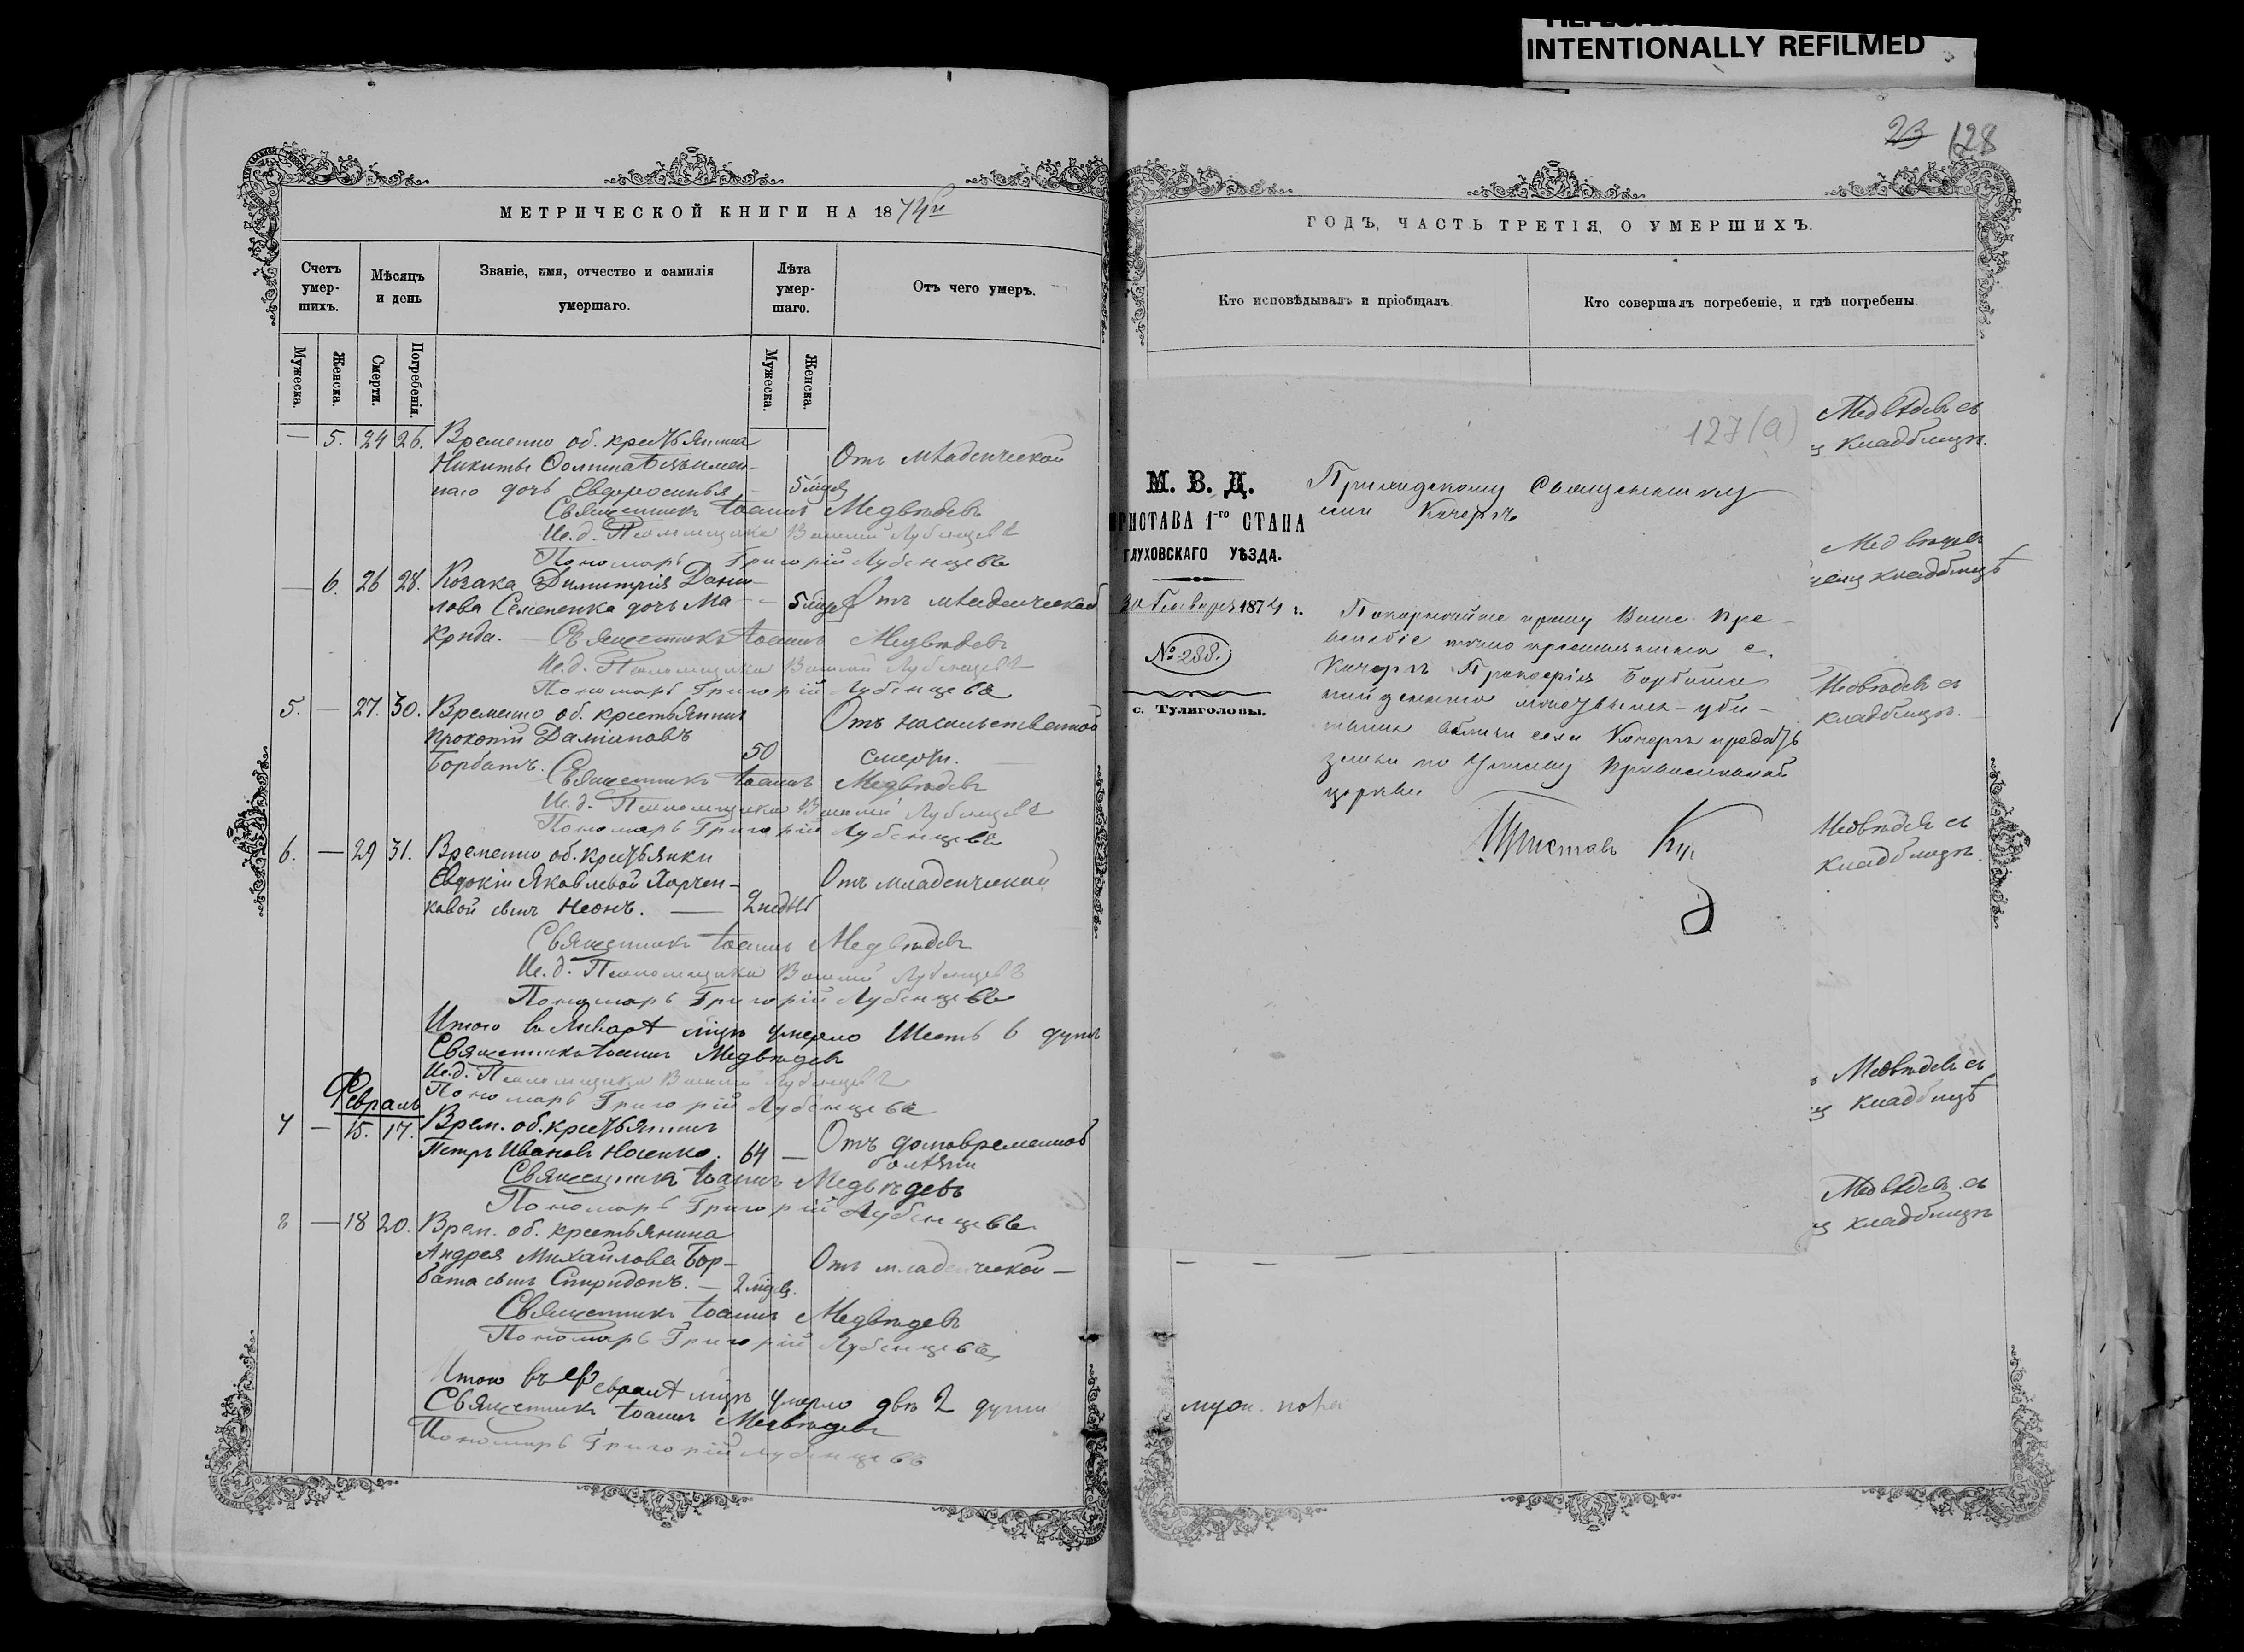 INTENTIONALLY REFILMED
23 128
МЕТРИЧЕСКОЙ КНИГИ НА 1874й
Счетъ умер-шихъ.
Мѣсяцъ и день
Званіе, имя, отчество и фамилія умершаго.
Лѣта умер-шаго.
Отъ чего умеръ.
Мужеска.
Женска.
Смерти.
Погребенія.
Мужеска.
Женска.
— 5. 24 26. Временно об. крестьянина
Никиты
наго дочь Евфросинья 5 мцев Отъ младенческой
Священникъ Іоаннъ Медвѣдевъ
Ис.д. Псаломщика Василій Лубенцевъ
Пономарь Григорій Лубенцевъ
— 6. 26 28. Козака Димитрія Дани-
лова Семененка дочь Ма- 5 мцев Отъ младенческой
крида. — Священникъ Іоаннъ Медвѣдевъ
Ис.д. Псаломщика Василій Лубенцевъ
Пономарь Григорій Лубенцевъ
5. — 27. 30. Временно об. крестьянинъ
Прокопій Даміановъ
Борбатъ. 50 Отъ насильственной смерти.
Священникъ Іоаннъ Медвѣдевъ
Ис.д. Псаломщика Василій Лубенцевъ
Пономарь Григорій Лубенцевъ
6. — 29 31. Временно об. крестьянки
Евдокіи Яковлевой Харчен-
ковой сынъ Леонъ. — 2 недѣл Отъ младенческой
Священникъ Іоаннъ Медвѣдевъ
Ис.д. Псаломщика Василій Лубенцевъ
Пономарь Григорій Лубенцевъ
Итого въ Январѣ мцѣ умерло Шесть 6 душъ
Священникъ Іоаннъ Медвѣдевъ
Ис.д. Псаломщика Василій Лубенцевъ
Пономарь Григорій Лубенцевъ
Февраль
7 — 15. 17. Врем. об. крестьянинъ
Петръ Ивановъ Носенко. 64 — Отъ долговременной болѣзни
Священникъ Іоаннъ Медвѣдевъ
Пономарь Григорій Лубенцевъ
8 — 18 20. Врем. об. крестьянина
Андрея Михайлова Бор-
бата сынъ Спиридонъ. — 2 мцев. Отъ младенческой —
Священникъ Іоаннъ Медвѣдевъ
Пономарь Григорій Лубенцевъ
Итого въ Февралѣ мцѣ умерло двѣ 2 души
Священникъ Іоаннъ Медвѣдевъ
Пономарь Григорій Лубенцевъ
ГОДЪ, ЧАСТЬ ТРЕТІЯ, О УМЕРШИХЪ.
Кто исповѣдывалъ и пріобщалъ
Кто совершалъ погребеніе, и гдѣ погребены
127(а)
М. В. Д.
ПРИСТАВА 1-го СТАНА
ГЛУХОВСКАГО УѢЗДА.
30 Января 1874 г.
№ 288.
с. Тулиголовы.
Приходскому Священнику
села Кочергъ
Покорнѣйше прошу Ваше Пре-
подобіе тѣло крестьянина с.
Кочергъ Прокофія Борбата
найденнаго
вблизи села Кочергъ предать
землѣ по Уставу Православной
церкви
Приставъ
Медвѣдевъ съ
кладбищѣ.
Медвѣдевъ
кладбищѣ
Медвѣдевъ съ
кладбищѣ.
Медвѣдевъ съ
кладбищѣ.
Медвѣдевъ съ
кладбищѣ
Медвѣдевъ съ
кладбищѣ